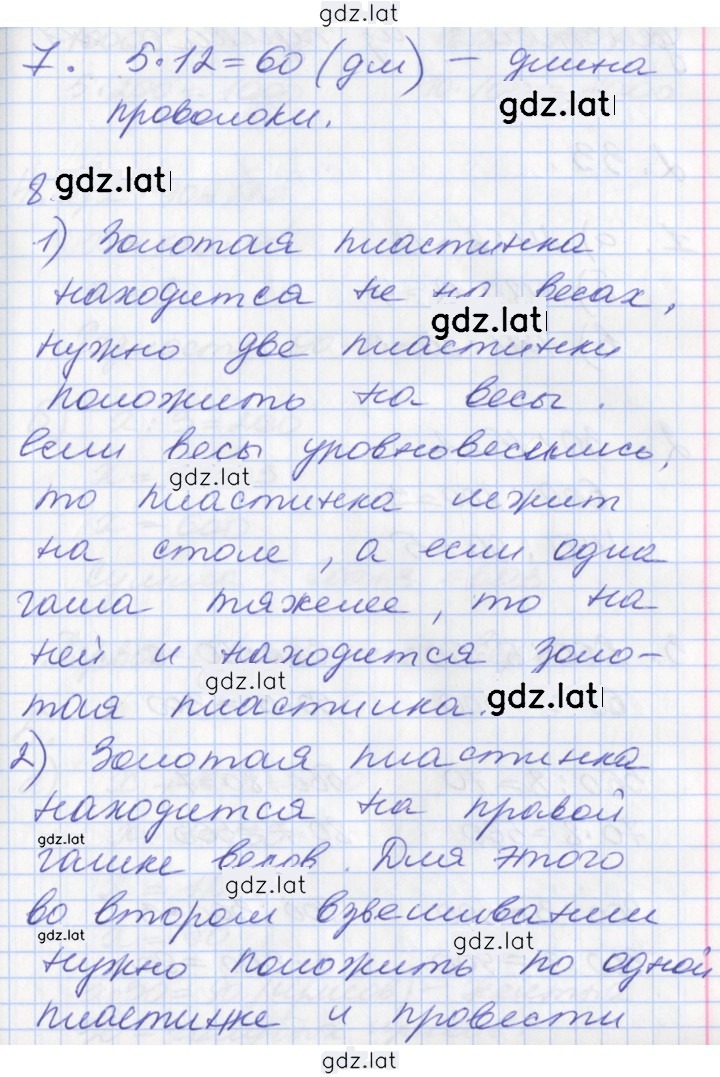 gdz.lat
7. 5·12=60 (дм) – длина
gdz.lat
проволоки.
8. gdz.lat
1) Золотая пластинка
находится не на весах,
gdz.lat
нужно две пластинки
положить на весы.
Если весы уровновесились,
gdz.lat
то пластинка лежит
на столе, а если одна
гаша тяжелее, то на
ней и находится золо-
gdz.lat
тая пластика. gdz.lat
2) Золотая пластинка
находится на правой
gdz.lat
гашке весов. Для этого
gdz.lat
во втором взвешивании
gdz.lat
gdz.lat
нужно положить по одной
пластинке и провести
gdz.lat